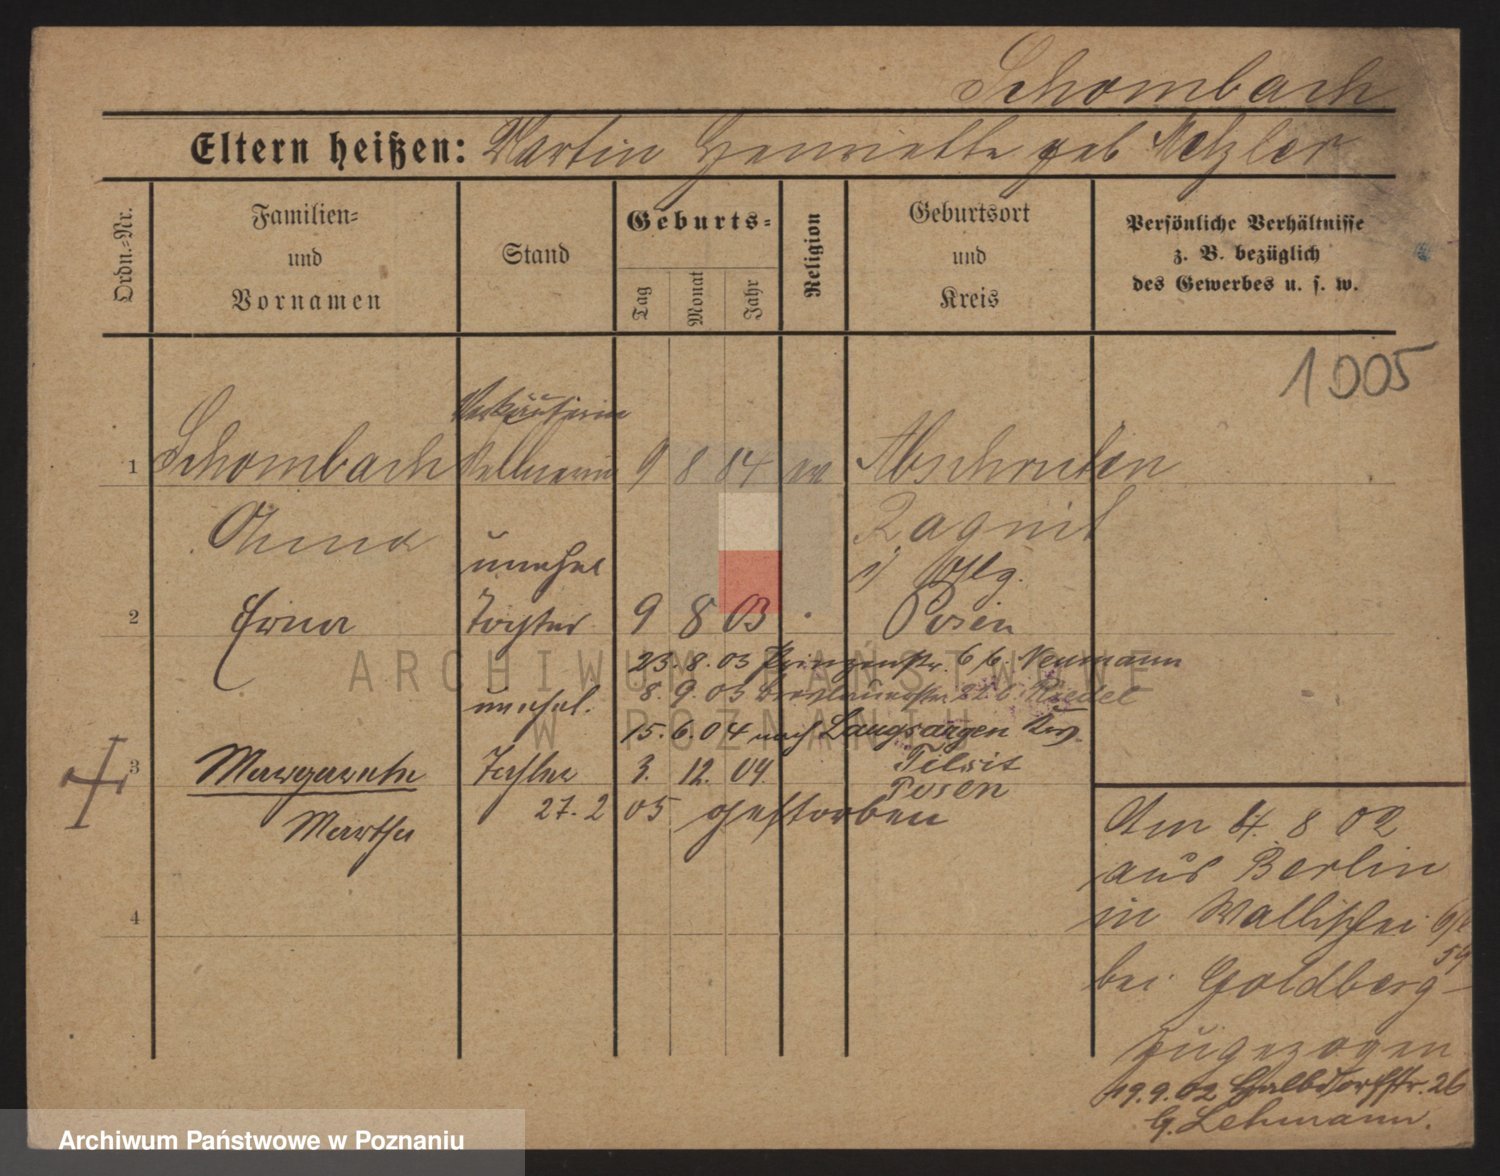 Schombach
Eltern heißen: Martin Henriette geb Metzler
Ordn.=Nr.
Familien=
und
Vornamen
Stand
Geburts=
Tag
Monat
Jahr
Religion
Geburtsort
und
Kreis
Persönliche Verhältnisse
z. B. bezüglich
des Gewerbes u. s. w.
1005
Verkäuferin
1 Schombach Kellnerin 9 8 84 ev Abschruten
Anna Ragnit
unehel
2 Erna Tochter 9 8 03 Posen
23.8.03 Prinzenstr. 6 b. Neumann
8.9.03 b. Riedel
unehel.
15.6.04 nach Laugsargen Krs.
Tilsit
3 Margarethe Tochter 3. 12. 04. Posen
Martha 27.2 05 gestorben
4
Am 4. 8 02
aus Berlin
in Wallischei
59
bei Goldberg
zugezogen
19.9.02 Halbdorfstr. 26
G. Lehmann.
ARCHIWUM PAŃSTWOWE
W POZNANIU
Archiwum Państwowe w Poznaniu